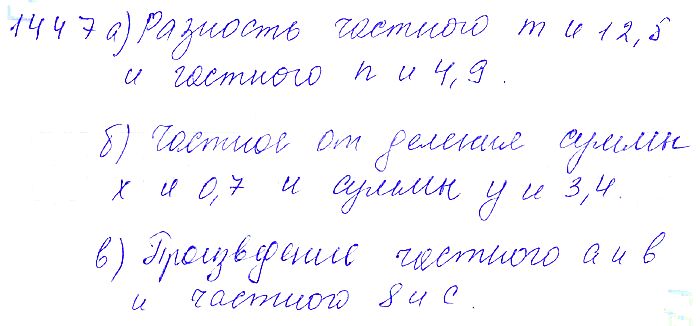 1447 а) Разность частного m и 12,5
и частного n и 4,9.
б) Частное от деления суммы
x и 0,7 и суммы y и 3,4.
в) Произведение частного а и в
и частного 8 и с.